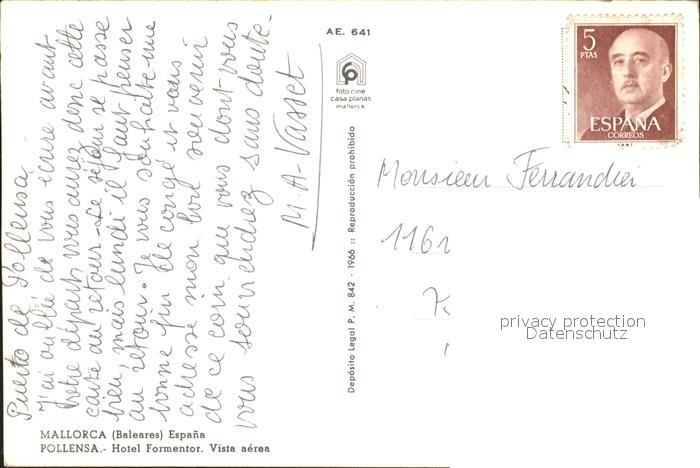 Puerto de Pollensa.
J'ai oublié de vous écrire avant
votre départ vous aurez donc cette
carte au retour - Le séjour se passe
bien, mais lundi il faut penser
au retour. Je vous souhaite une
bonne fin de congé et vous
adresse mon bon souvenir
de ce coin que vous dont vous
vous souviendrez sans doute.
M-A-Vasset
MALLORCA (Baleares) España
POLLENSA.- Hotel Formentor. Vista aérea
AE. 641
foto cine
casa planas
mallorca
Depósito Legal P. M. 842 - 1966 :: Reproducción prohibida
5
PTAS
ESPAÑA
CORREOS
Monsieur Ferrandier
116
privacy protection
Datenschutz